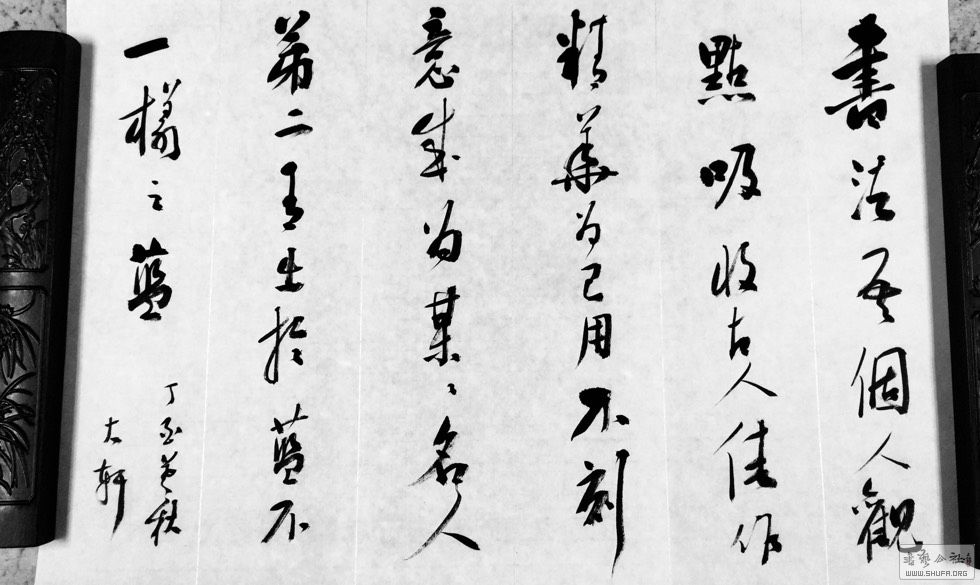 書法吾個人觀
點吸收古人佳作
精華為己用不刻
意成為某〻名人
第二青生於藍不
一樣之藍
丁酉
秋
大軒
WWW.SHUFA.ORG